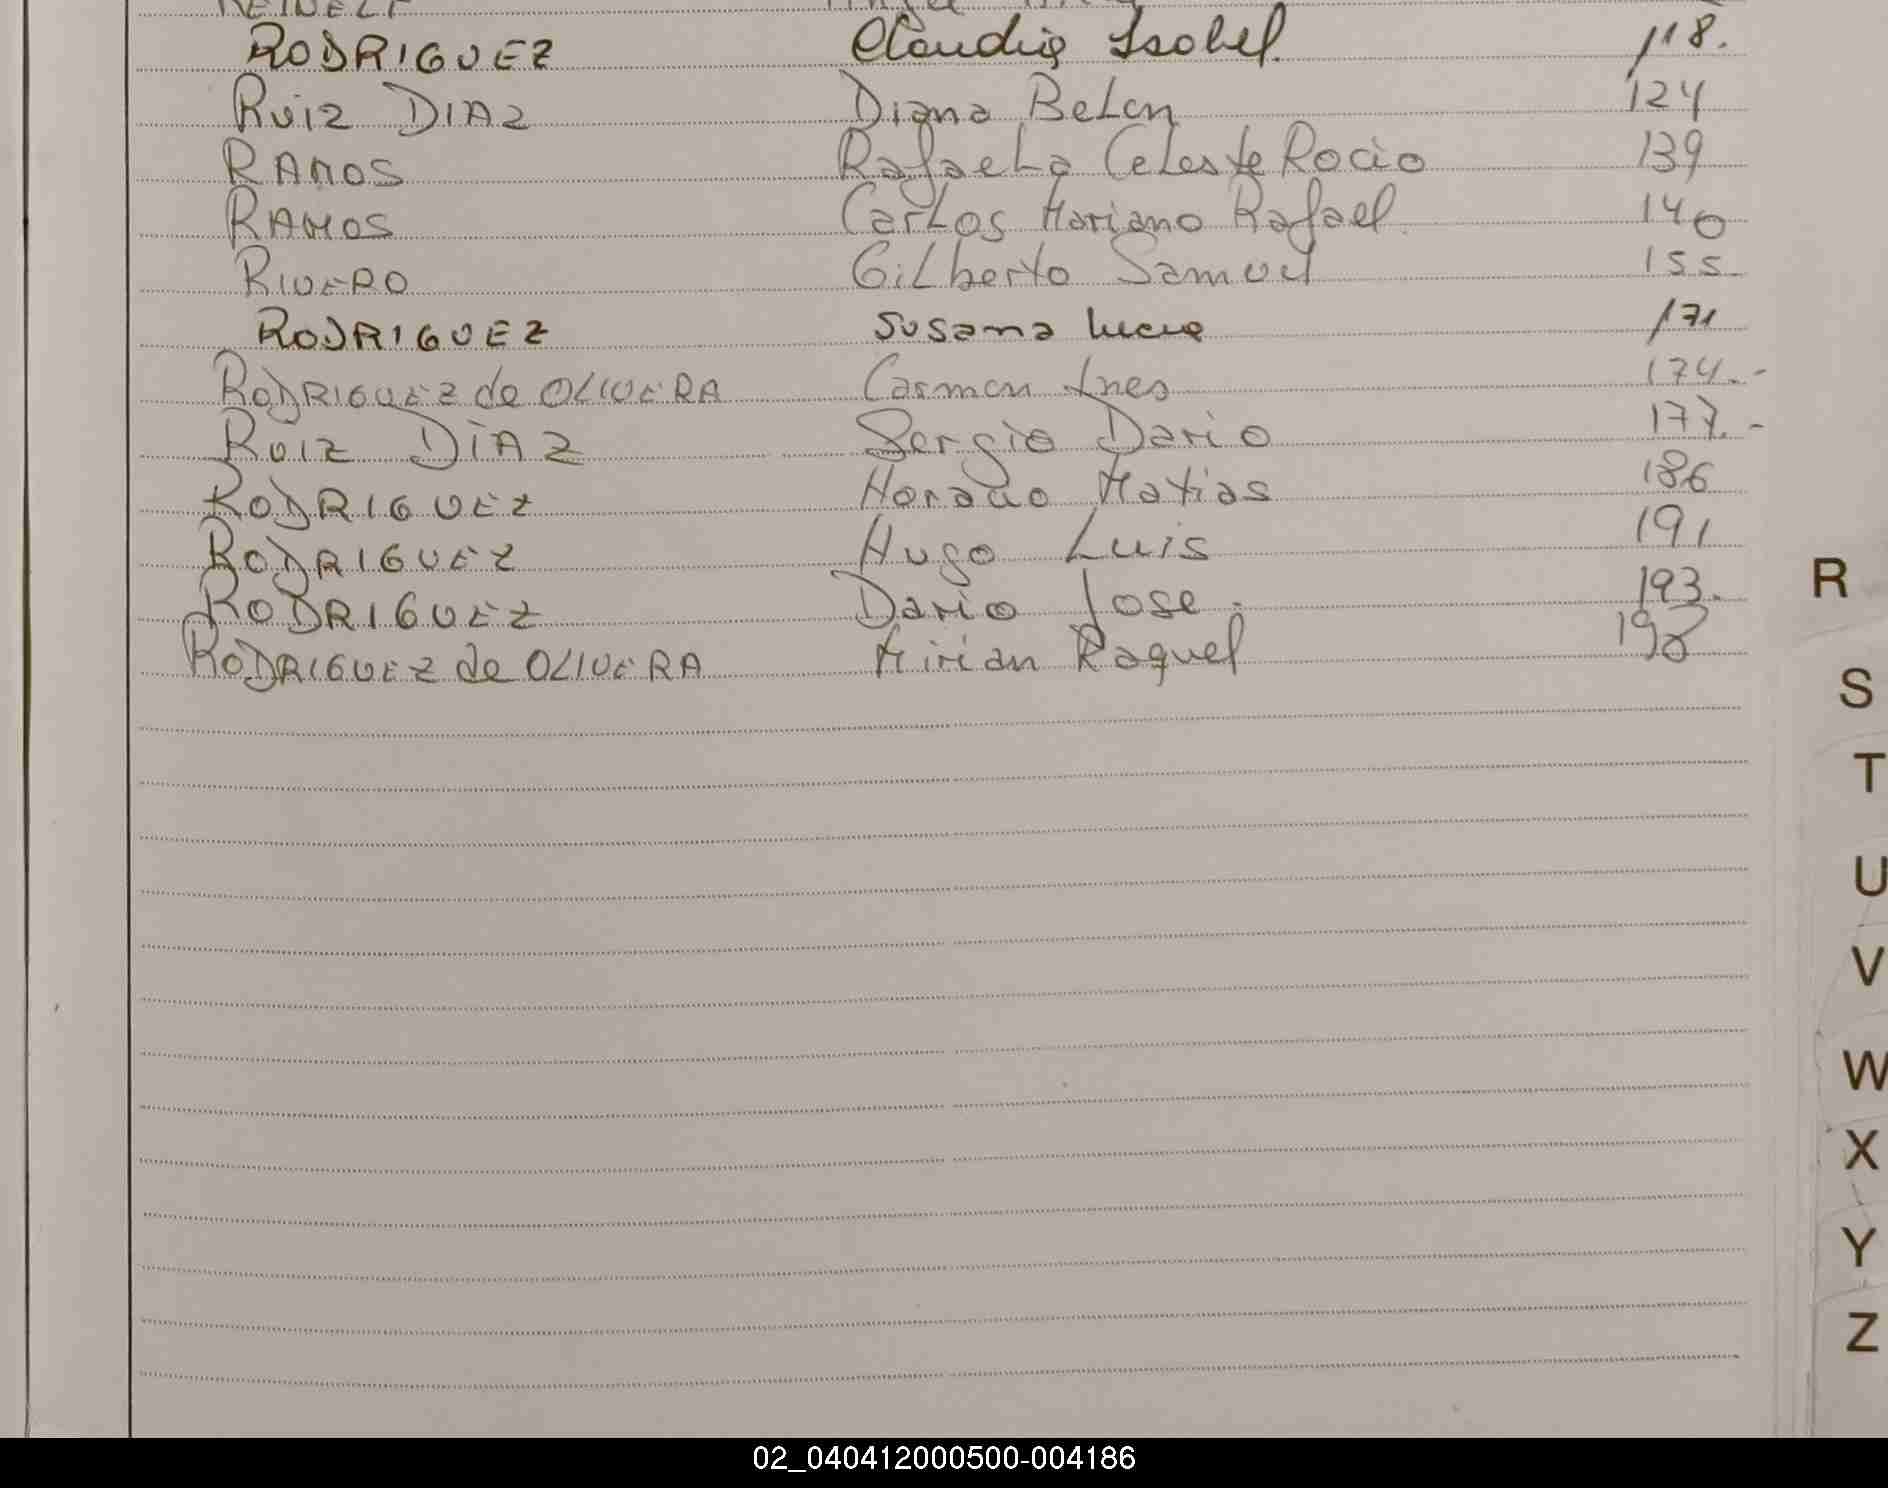 RODRIGUEZ Claudia Isabel. 118.
RUIZ DIAZ Diana Belen 124
RAMOS Rafaela Celeste Rocio 139
RAMOS Carlos Mariano Rafael. 140
RIVERO Gilberto Samuel 155.
RODRIGUEZ Susana Lucia 171
RODRIGUEZ de OLIVERA Carmen Ines 174.-
RUIZ DIAZ Sergio Dario 177.-
RODRIGUEZ Horacio Matias 186
RODRIGUEZ Hugo Luis 191
RODRIGUEZ Dario Jose. 193.
RODRIGUEZ de OLIVERA Mirian Raquel
R
S
T
U
V
W
X
Y
Z
02_040412000500-004186